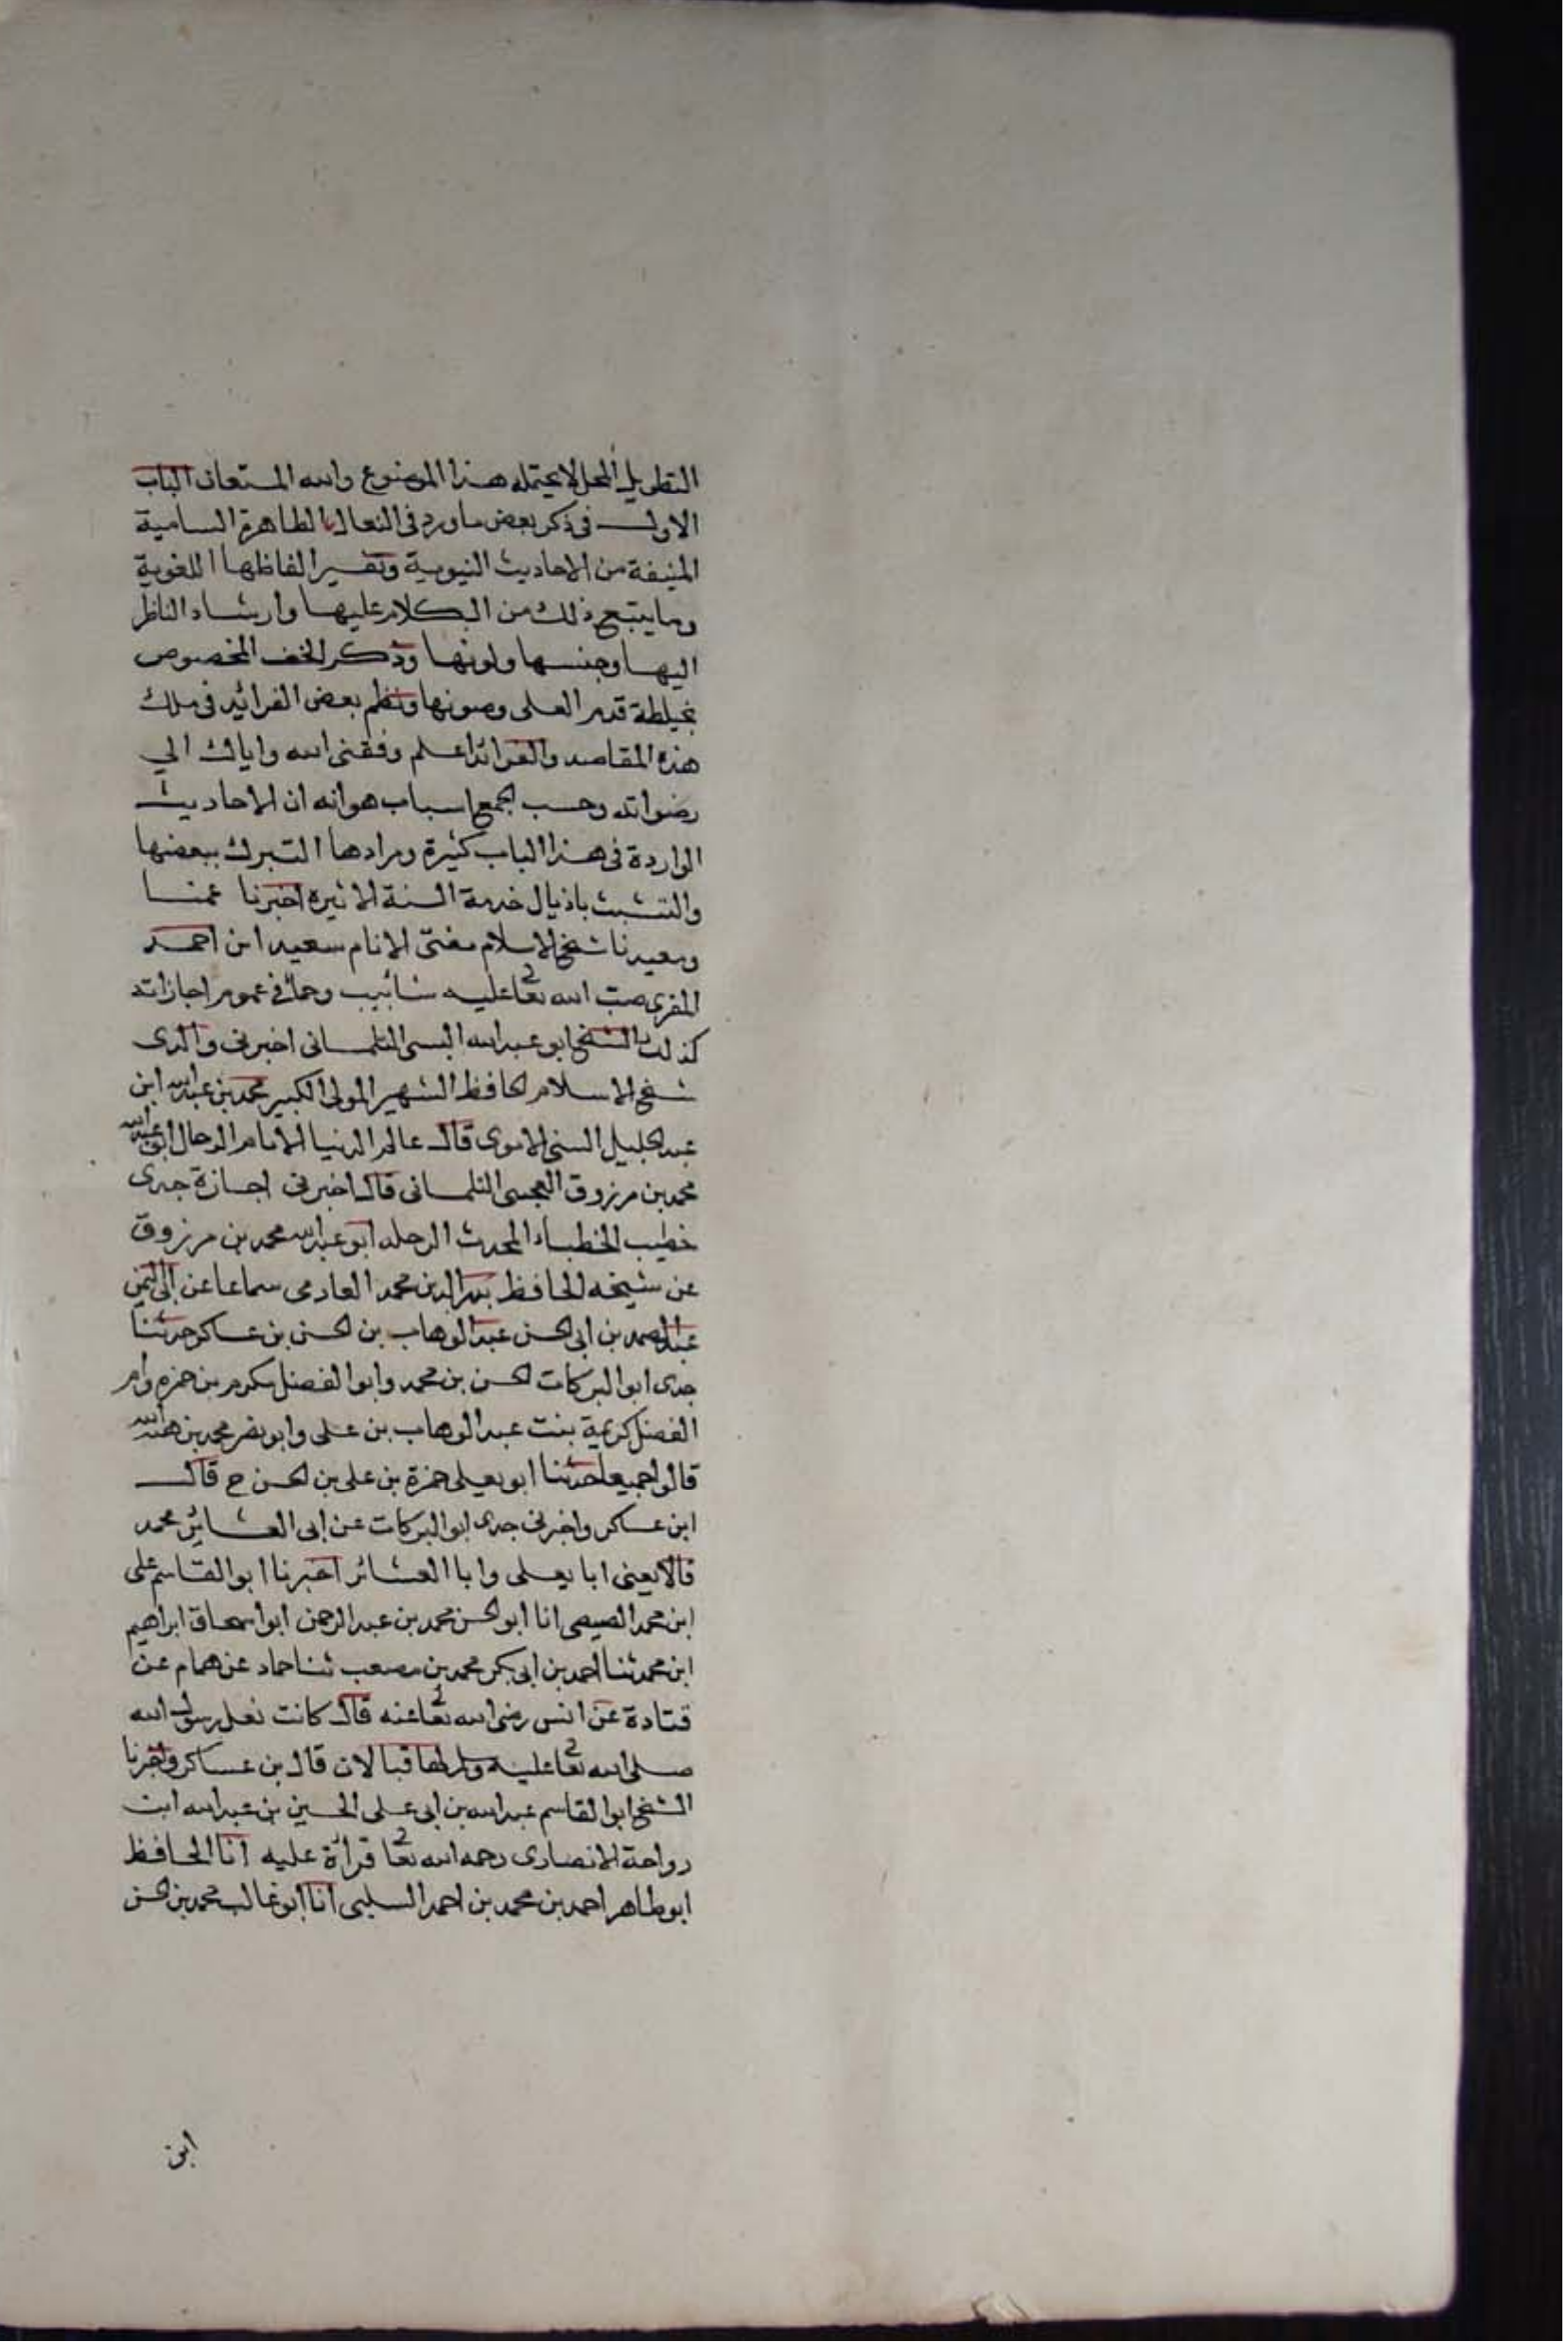 التطويل المخل لا يحتمله هذا الموضوع والله المستعان الباب
الاول في ذكر بعض ما ورد في النعال الطاهرة السامية
المنيفة من الاحاديث النبوية وتفسير الفاظها اللغوية
وما يتبع ذلك من الكلام عليها وارشاد الناظر
اليها وجنسها ولونها وذكر الخف المخصوص
قدم العلى وصونها ونظم بعض الفرائد في سلك
هذه المقاصد والفوائد اعلم وفقني الله واياك الي
رضوانه وحسب بجمع اسباب هوانه ان الاحاديث
الواردة في هذا الباب كثيرة ومرادها التبرك ببعضها
والتشبث باذيال خدمة السنة الاثيره اخبرنا عمنا
ومعيدنا شيخ الاسلام مفتى الانام سعيد ابن احمد
المقرى صب الله تعا عليه شائبيب وحماى في عموم اجازاته
كذلك الشيخ ابو عبد الله التنسى التلمسانى اخبرنى والدى
شيخ الاسلام الحافظ الشهير المولى الكبير محمد بن عبد الله ابن
عبد الجليل السنى الاموى قال عالم الدنيا الامام الرحال ابو عبد الله
محمد بن مرزوق العجسى التلمسانى قال اخبرنى اجازة جدى
خطيب الخطباء المحدث الرحله ابو عبد الله محمد بن مرزوق
عن شيخه الحافظ بدر الدين محمد العادمى سماعا عن ابى اليمن
عبد الصمد بن ابى الحسن عبد الوهاب بن الحسن بن عساكر حدثنا
جدى ابو البركات الحسن بن محمد وابو الفضل مكرم بن حمزه وام
الفضل كريمة بنت عبد الوهاب بن على وابو نصر محمد بن هبة الله
قالوا جميعا حدثنا ابو يعلى حمزة بن على بن الحسن ح قال
ابن عساكر واخبرنى جدى ابو البركات عن ابى العشاير محمد
قالا يعنى ابا يعلى وابا العشائر اخبرنا ابو القاسم على
ابن محمد المصيصى انا ابو الحسن محمد بن عبد الرحمن ابو اسحاق ابراهيم
ابن محمد ثنا احمد بن ابى بكر محمد بن مصعب ثنا حماد عن همام عن
قتادة عن انس رضى الله تعا عنه قال كانت نعل رسول الله
صلى الله تعا عليه وسلم لها قبالان قال بن عساكر واخبرنا
الشيخ ابو القاسم عبد الله بن ابى على الحسين بن عبد الله ابن
رواحة الانصارى رحمه الله تعا قراة عليه انا الحافظ
ابو طاهر احمد بن محمد بن احمد السلبى انا ابو غالب محمد بن الحسن
ابن